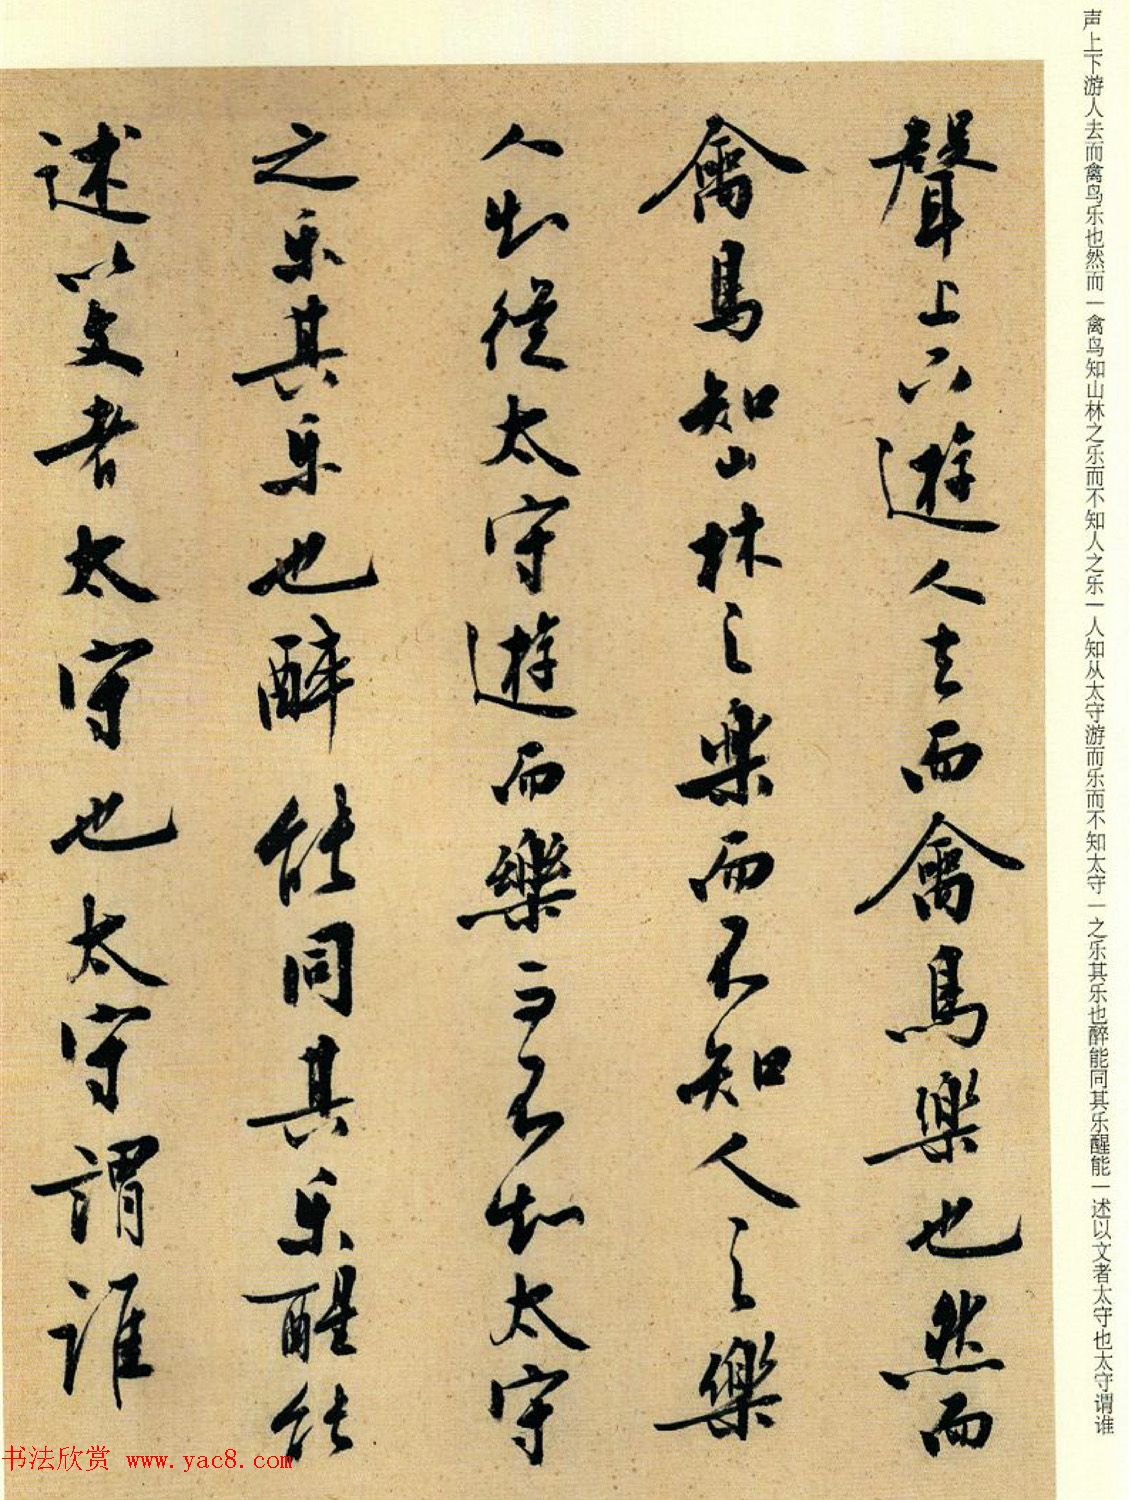 声上下游人去而禽鸟乐也然而一禽鸟知山林之乐而不知人之乐一人知从太守游而乐而不知太守一之乐其乐也醉能同其乐醒能一述以文者太守也太守谓谁
聲上下遊人去而禽鳥樂也然而
禽鳥知山林之樂而不知人之樂
人知從太守遊而樂而不知太守
之乐其乐也醉能同其乐醒能
述以文者太守也太守謂誰
书法欣赏 www.yac8.com